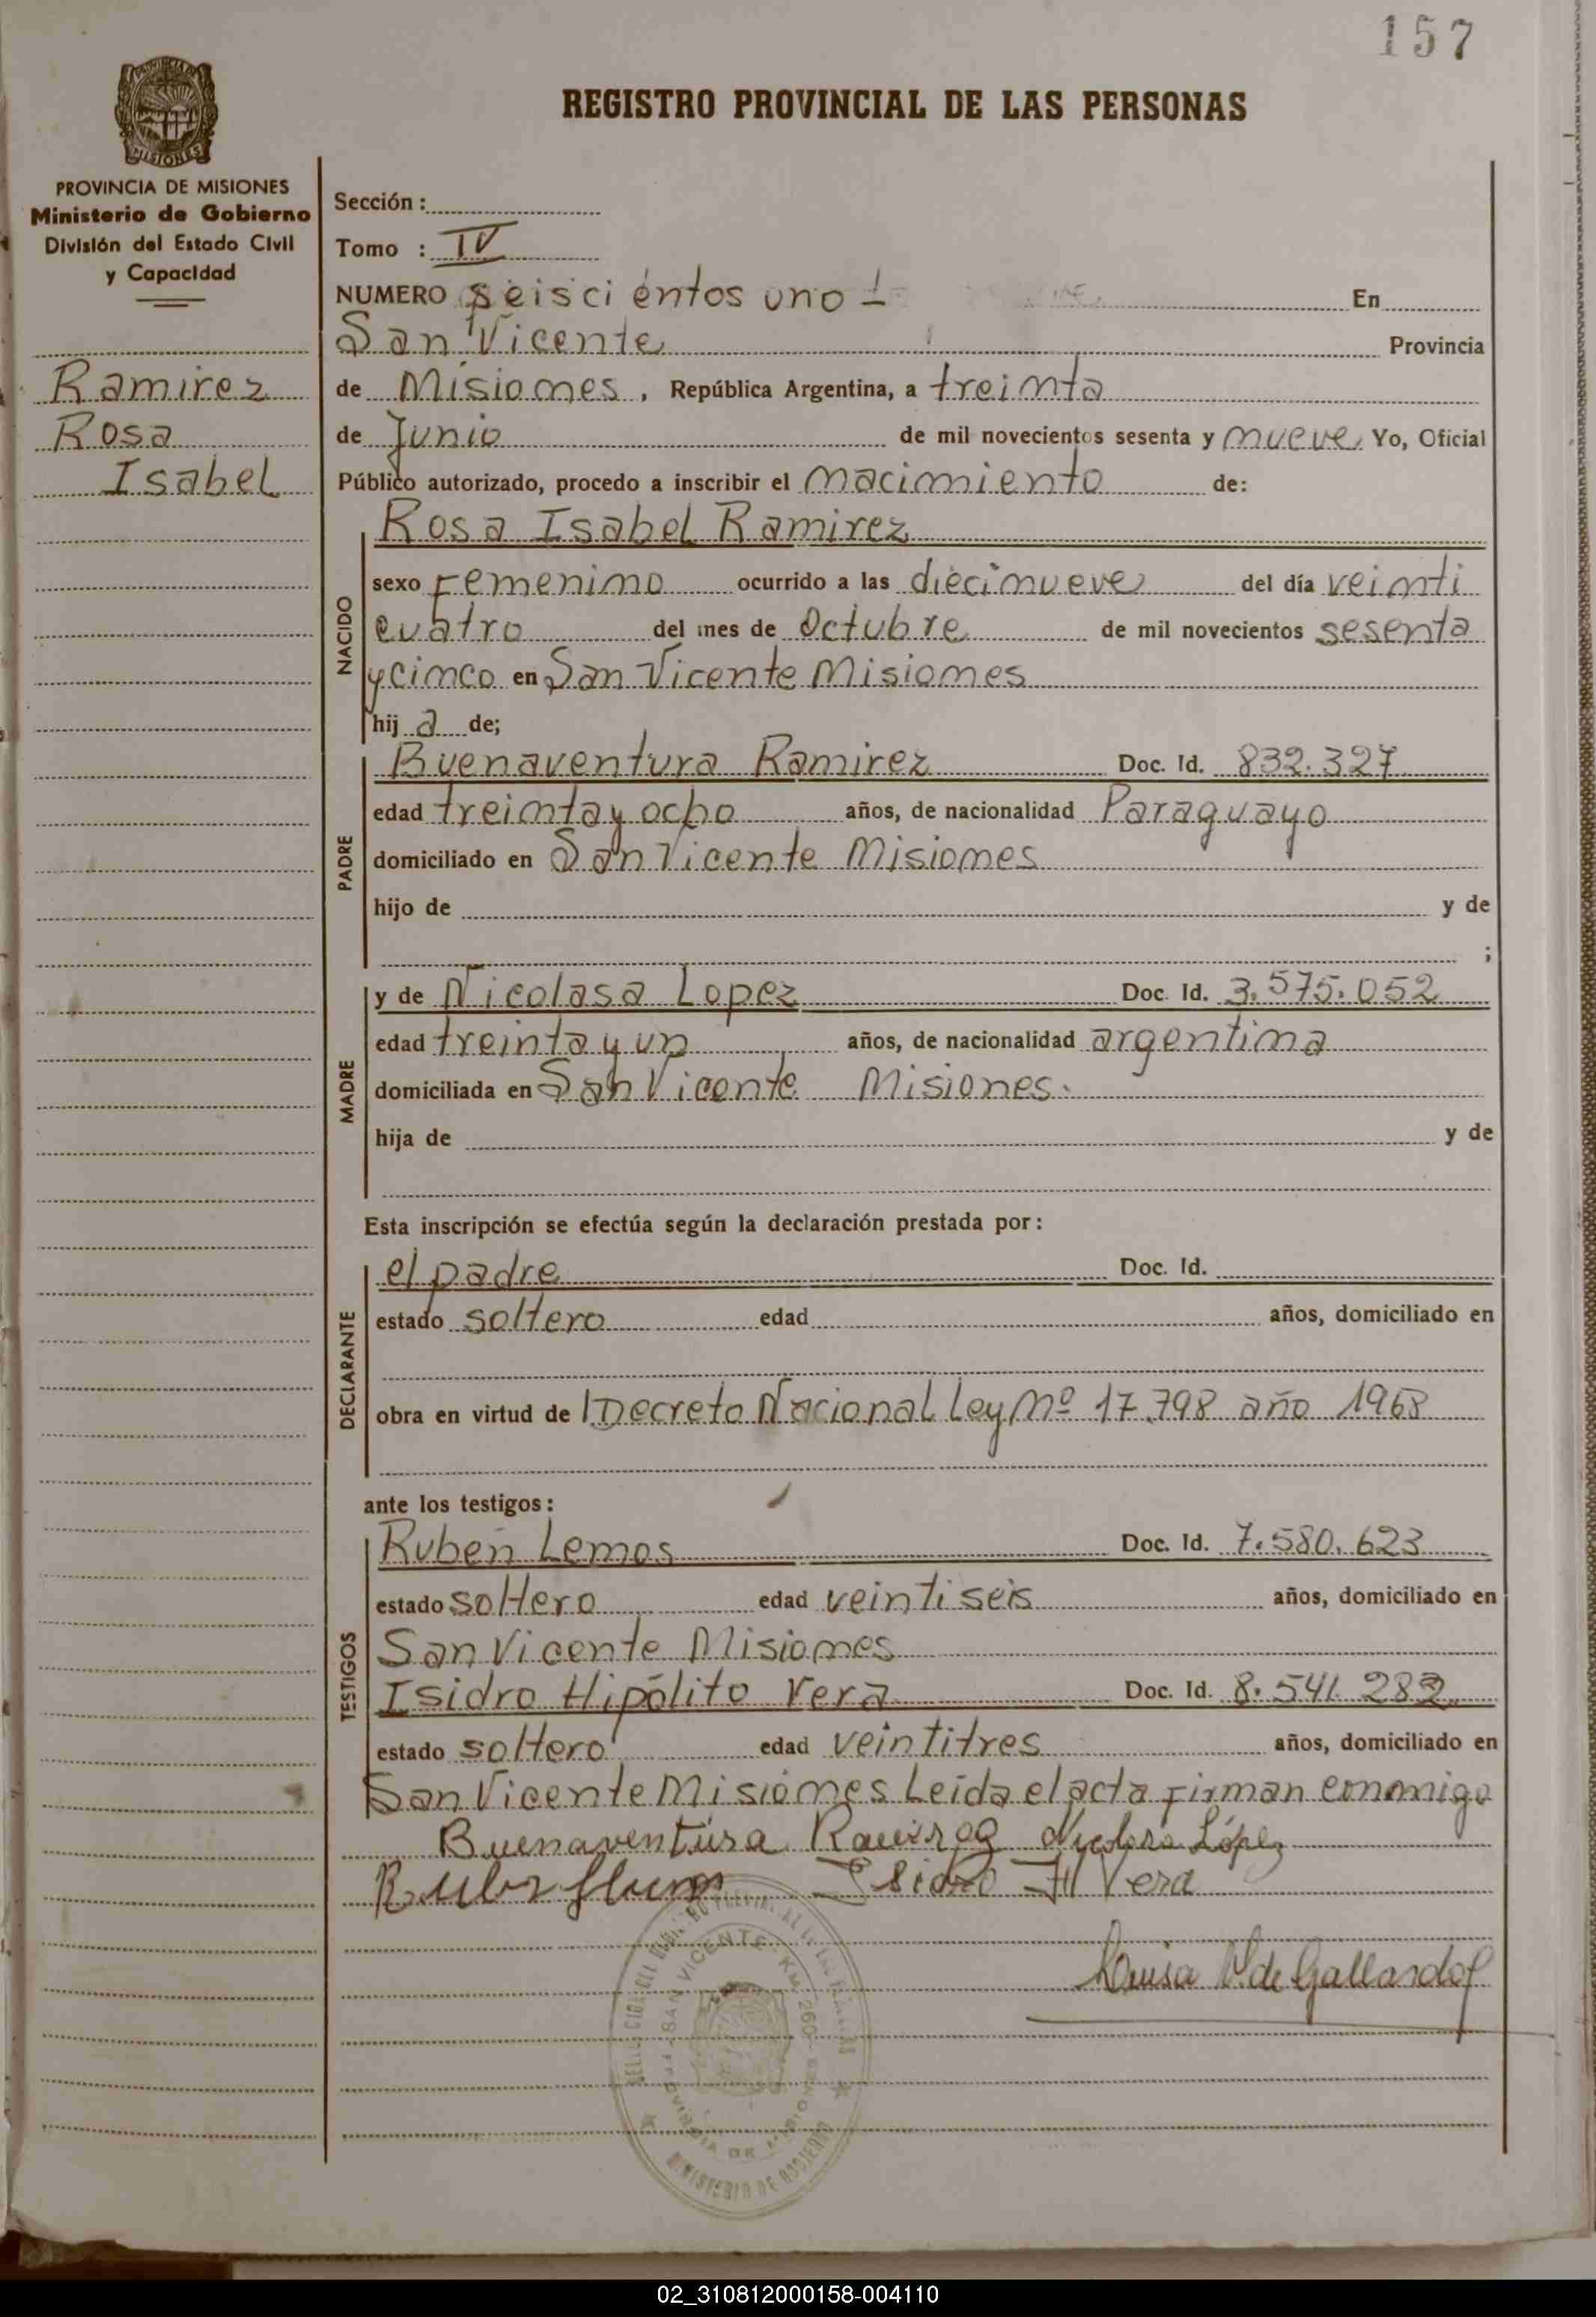 157
REGISTRO PROVINCIAL DE LAS PERSONAS
MISIONES
PROVINCIA DE MISIONES
Ministerio de Gobierno
División del Estado Civil
y Capacidad
Ramirez
Rosa
Isabel
Sección :
Tomo : IV
NUMERO seiscientos uno En
San Vicente Provincia
de Misiones, República Argentina, a treinta
de Junio de mil novecientos sesenta y nueve Yo, Oficial
Público autorizado, procedo a inscribir el nacimiento de:
Rosa Isabel Ramirez
NACIDO
sexo Femenino ocurrido a las diecinueve del día veinti
cuatro del mes de Octubre de mil novecientos sesenta
y cinco en San Vicente Misiones
hij a de;
PADRE
Buenaventura Ramirez Doc. Id. 832.327
edad treinta y ocho años, de nacionalidad Paraguayo
domiciliado en San Vicente Misiones
hijo de y de
;
MADRE
y de Nicolasa Lopez Doc. Id. 3.575.052
edad treinta y un años, de nacionalidad argentina
domiciliada en San Vicente Misiones.
hija de y de
Esta inscripción se efectúa según la declaración prestada por:
DECLARANTE
el padre Doc. Id.
estado soltero edad años, domiciliado en
obra en virtud de Decreto Nacional Ley Nº 17.798 año 1968
ante los testigos:
TESTIGOS
Ruben Lemos Doc. Id. 7.580.623
estado soltero edad veintiseis años, domiciliado en
San Vicente Misiones
Isidro Hipólito Vera Doc. Id. 8.541.282
estado soltero edad veintitres años, domiciliado en
San Vicente Misiones Leida el acta firman conmigo
Buenaventura Ramirez Nicolasa López
Isidro H Vera
Luisa V. de Gallardo
SAN VICENTE - KM. 260
PROVINCIA DE MISIONES
MINISTERIO DE GOBIERNO
02_310812000158-004110